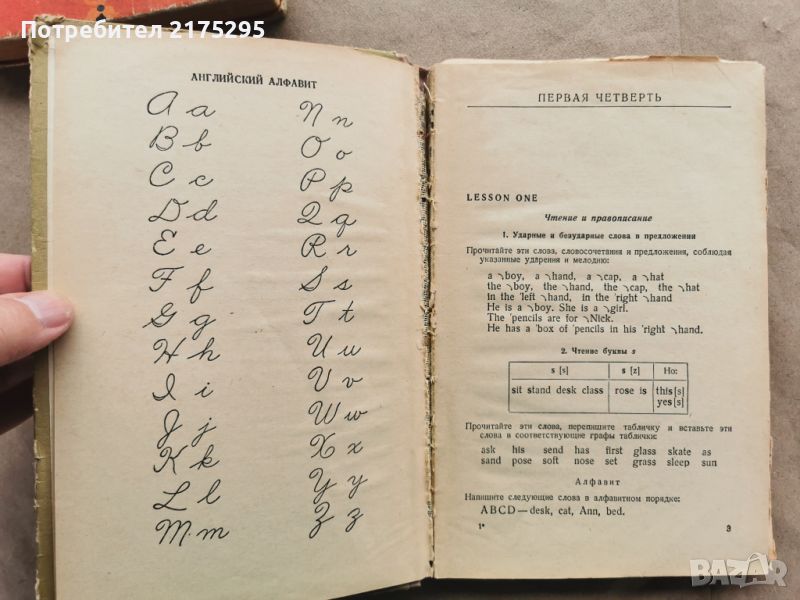 Потребител 2175295
АНГЛИЙСКИЙ АЛФАВИТ
A a
B b
C c
D d
E e
F f
G g
H h
I i
J j
K k
L l
M m
N n
O o
P p
Q q
R r
S s
T t
U u
V v
W w
X x
Y y
Z z
ПЕРВАЯ ЧЕТВЕРТЬ
LESSON ONE
Чтение и правописание
1. Ударные и безударные слова в предложении
Прочитайте эти слова, словосочетания и предложения, соблюдая
указанные ударения и мелодию:
a ↘boy, a ↘hand, a ↘cap, a ↘hat
the ↘boy, the ↘hand, the ↘cap, the ↘hat
in the 'left ↘hand, in the 'right ↘hand
He is a ↘boy. She is a ↘girl.
The 'pencils are for ↘Nick.
He has a 'box of 'pencils in his 'right ↘hand.
2. Чтение буквы s
s [s] s [z] Но:
sit stand desk class rose is this [s]
yes [s]
Прочитайте эти слова, перепишите табличку и вставьте эти
слова в соответствующие графы таблички:
ask his send has first glass skate as
sand pose soft nose set grass sleep sun
Алфавит
Напишите следующие слова в алфавитном порядке:
ABCD — desk, cat, Ann, bed.
1*
3
BAZAR